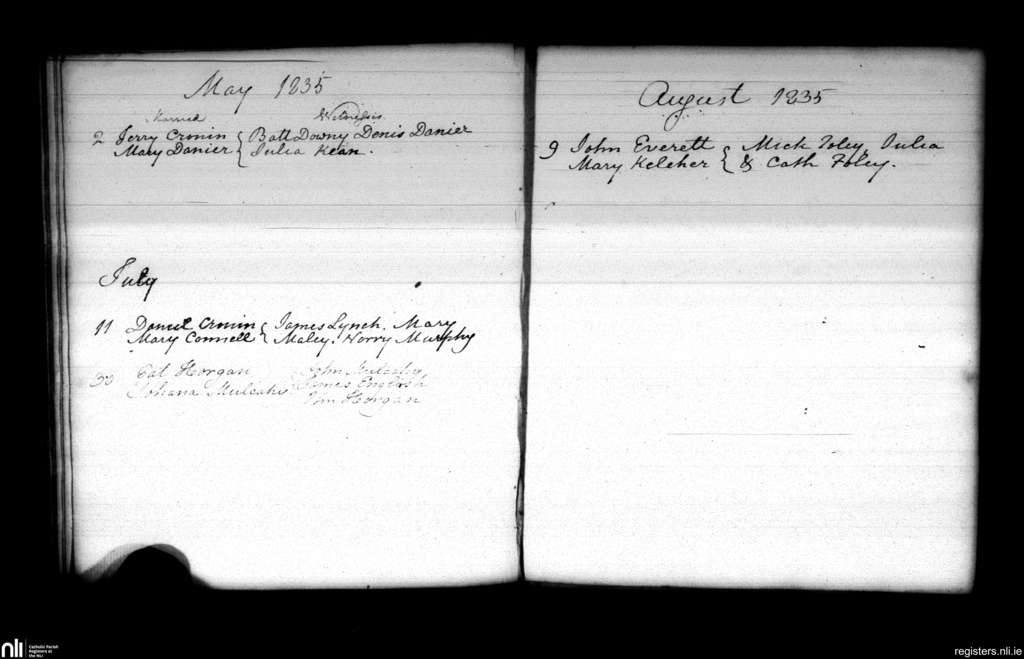 May 1835
Married Witnesses
2 Jerry Cronin { Batt Downy Denis Danier
Mary Danier { Julia Kean.
July
11 Daniel Cronin { James Lynch. Mary
Mary Connell { Maley. Norry Murphy
30 Pat Horgan { John Mulcahy
Johana Mulcahy James English
Horgan
August 1835
9 John Everett { Mick Foley, Julia
Mary Keleher { & Cath Foley.
nli Catholic Parish
Registers at
the NLI
registers.nli.ie